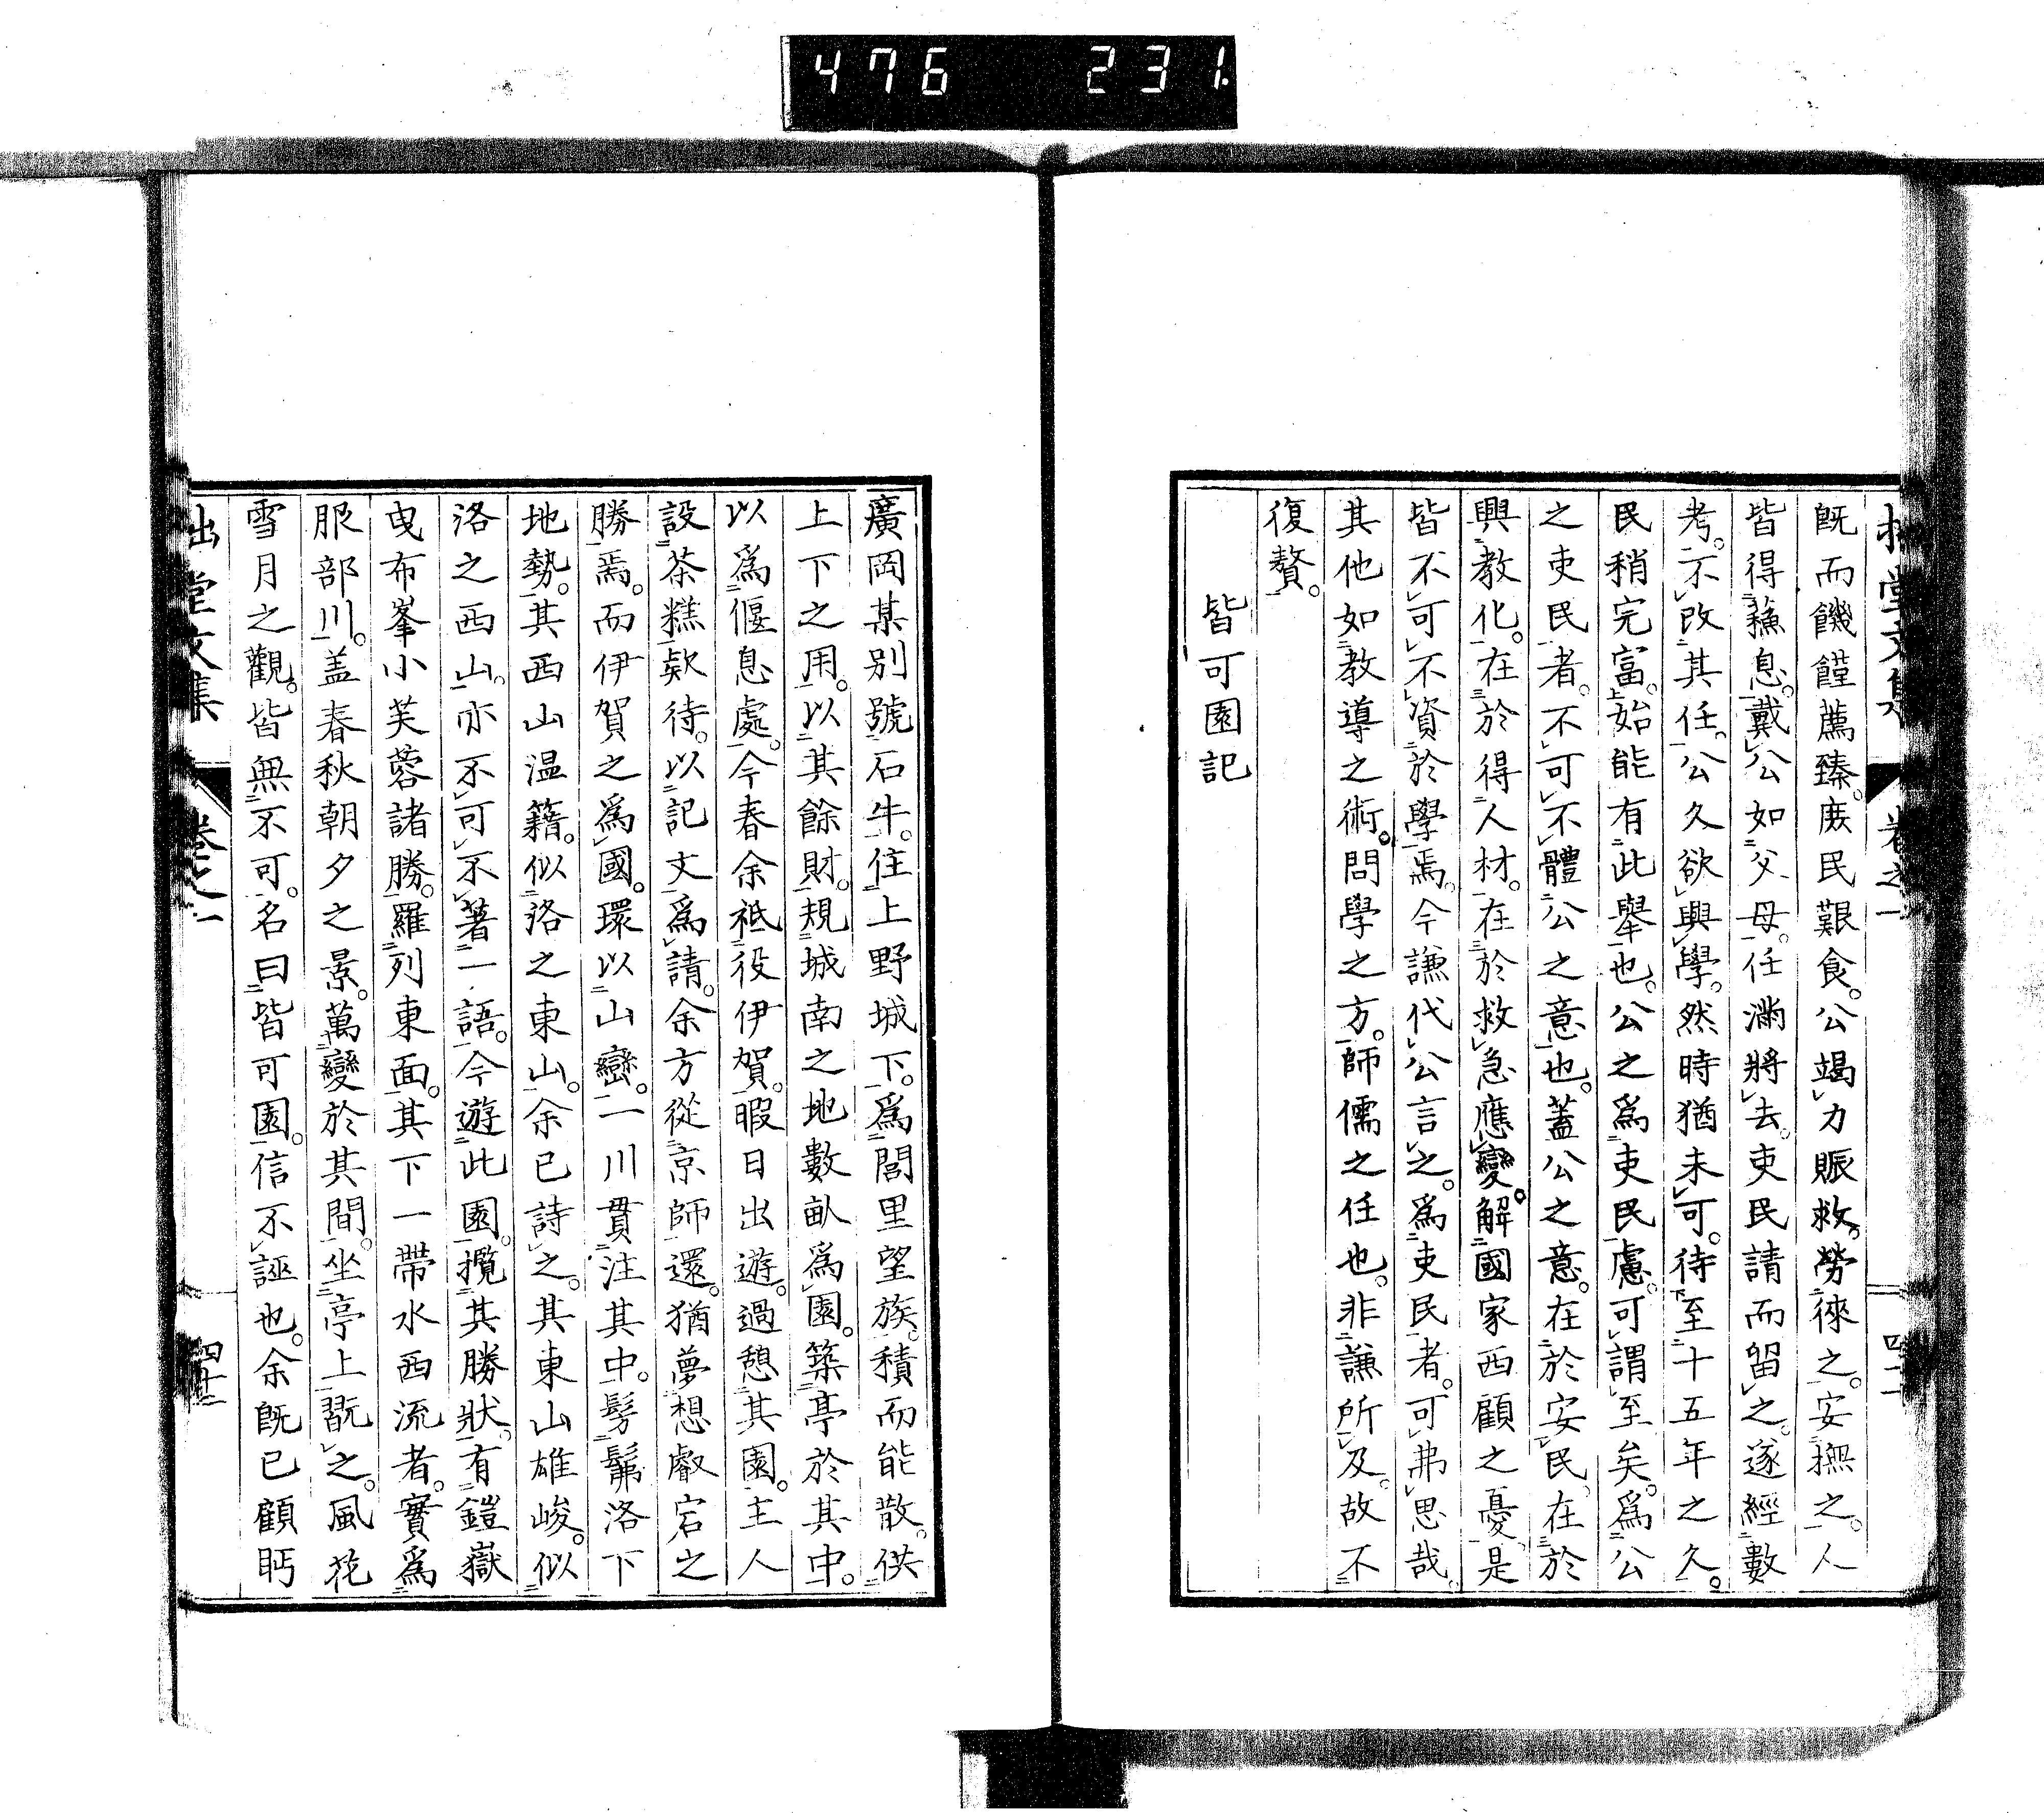 476 231.
拙堂文集 卷之一 四十二
既而饑饉薦臻。厥民艱食。公竭力賑救。勞徠之。安撫之。人
皆得蘓息。戴公如父母。任滿將去。吏民請而留之。遂經數
考。不改其任。公久欲興學。然時猶未可。待至十五年之久。
民稍完富。始能有此舉也。公之爲吏民慮。可謂至矣。爲公
之吏民者。不可不體公之意也。蓋公之意。在於安民。在於
興教化。在於得人材。在於救急應變。解國家西顧之憂。是
皆不可不資於學焉。今謙代公言之。爲吏民者。可弗思哉。
其他如教導之術。問學之方。師儒之任也。非謙所及。故不
復贅。
皆可園記
廣岡某别號石牛。住上野城下。爲閭里望族。積而能散。供
上下之用。以其餘財。規城南之地數畝爲園。築亭於其中。
以爲偃息處。今春余祗役伊賀。暇日出遊。過憩其園。主人
設茶糕欵待。以記文爲請。余方從京師還。猶夢想叡宕之
勝焉。而伊賀之爲國。環以山巒。一川貫注其中。髣髴洛下
地勢。其西山温籍。似洛之東山。余已詩之。其東山雄峻。似
洛之西山。亦不可不著一語。今遊此園。攬其勝狀。有鎧嶽
曳布峯小芙蓉諸勝。羅列東面。其下一帶水西流者。實爲
服部川。盖春秋朝夕之景。萬變於其間。坐亭上翫之。風花
雪月之觀。皆無不可。名曰皆可園。信不誣也。余既已顧眄
拙堂文集 卷之一 四十三